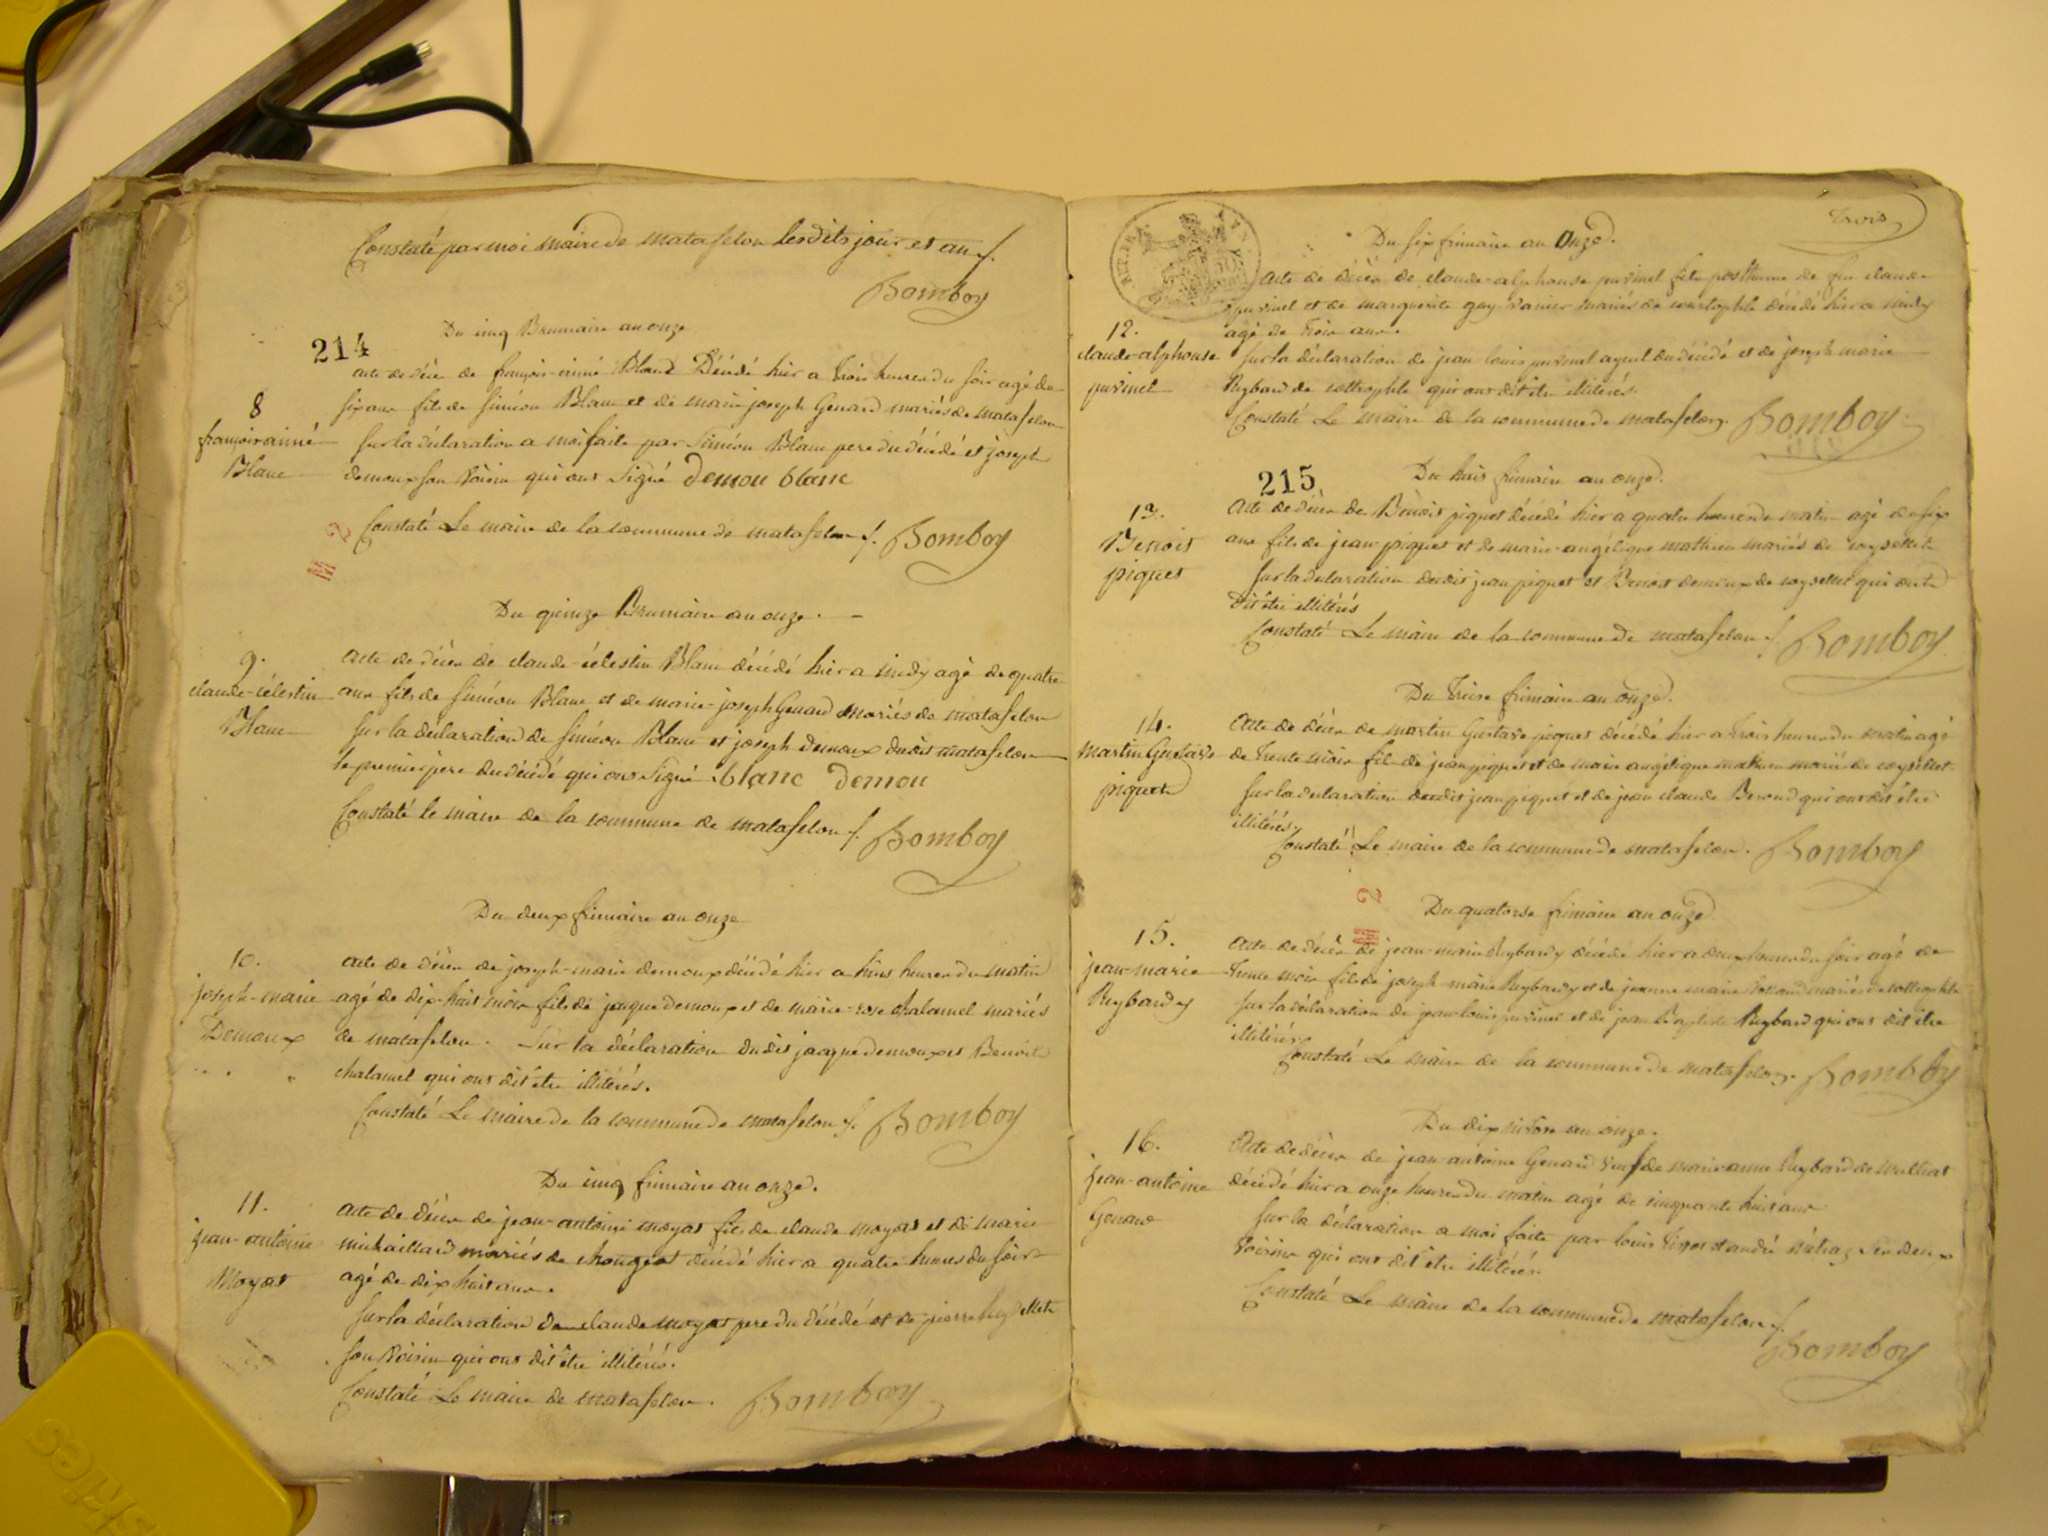 Constaté par moi maire de matafelon lesdits jour et an
Bomboy
214
Du cinq Brumaire an onze
8
françois aimé
Blanc
acte de décès de françois aimé Blanc Décédé hier a trois heures du soir agé de
six ans fils de siméon Blanc et de marie joseph Genard mariés de matafelon
sur la déclaration a moi faite par siméon Blanc pere du décédé et joseph
demoux son voisin qui ont signé demou blanc
Constaté Le maire de la commune de matafelon Bomboy
Du quinze Brumaire an onze
9.
claude-célestin
Blanc
acte de décès de claude-célestin Blanc décédé hier a midy agé de quatre
ans fils de siméon Blanc et de marie-joseph Genard mariés de matafelon
sur la déclaration de siméon Blanc et joseph demoux dudit matafelon
le premier pere du décédé qui ont signé blanc demou
Constaté le maire de la commune de matafelon Bomboy
Du deux frimaire an onze
10.
joseph-marie
Demoux
acte de décès de joseph-marie demoux décédé hier a huit heures du matin
agé de dix-huit mois fils de jacque demoux et de marie-rose chalamel mariés
de matafelon. Sur la déclaration dudit jacque demoux et Benoit
chalamel qui ont dit être illitérés.
Constaté Le maire de la commune de matafelon Bomboy
Du cinq frimaire an onze.
11.
jean-antoine
Moyat
acte de décès de jean-antoine moyat fils de claude moyat et de marie
michaillard mariés de chougeat décédé hier a quatre heures du soir
agé de dix huit ans.
sur la déclaration de claude moyat pere du décédé et de pierre
son voisin qui ont dit être illitérés.
Constaté Le maire de matafelon. Bomboy
Trois
Du six frimaire an onze.
12.
claude-alphonse
juvinel
acte de décès de claude-alphonse juvinel fils posthume de feu claude
juvinel et de marguerite guy mariés de décédé hier a midy
agé de trois ans.
sur la déclaration de jean louis juvinel ayeul du décédé et de joseph marie
Reybard de qui ont dit être illitérés.
Constaté Le maire de la commune de matafelon. Bomboy
215
Du huit frimaire an onze.
13.
Benoit
piquet
acte de décès de Benoit piquet décédé hier a quatre heures du matin agé de six
ans fils de jean piquet et de marie-angélique mathieu mariés de
sur la déclaration dudit jean piquet et Benoit demoux de qui ont
dit être illitérés
Constaté Le maire de la commune de matafelon Bomboy
Du treize frimaire an onze.
14.
martin Gustave
piquet
acte de décès de martin Gustave piquet décédé hier a trois heures du matin agé
de trente mois fils de jean piquet et de marie angélique mathieu mariés de
sur la déclaration dudit jean piquet et de jean claude Berond qui ont dit être
illitérés.
Constaté Le maire de la commune de matafelon. Bomboy
Du quatorze frimaire an onze
15.
jean-marie
Reybardy
acte de décès de jean-marie Reybardy décédé hier a deux heures du soir agé de
trente mois fils de joseph marie Reybardy et de jeanne marie mariés de
sur la déclaration de jean-louis juvinel et de jean Baptiste Reybard qui ont dit être
illitérés.
Constaté Le maire de la commune de matafelon. Bomboy
Du dix nivose an onze.
16.
jean-antoine
Genard
Acte de décès de jean antoine Genard veuf de marie anne Reybard de
décédé hier a onze heures du matin agé de cinquante huit ans
sur la déclaration a moi faite par louis et andré ses deux
voisins qui ont dit être illitérés
Constaté Le maire de la commune de matafelon
Bomboy